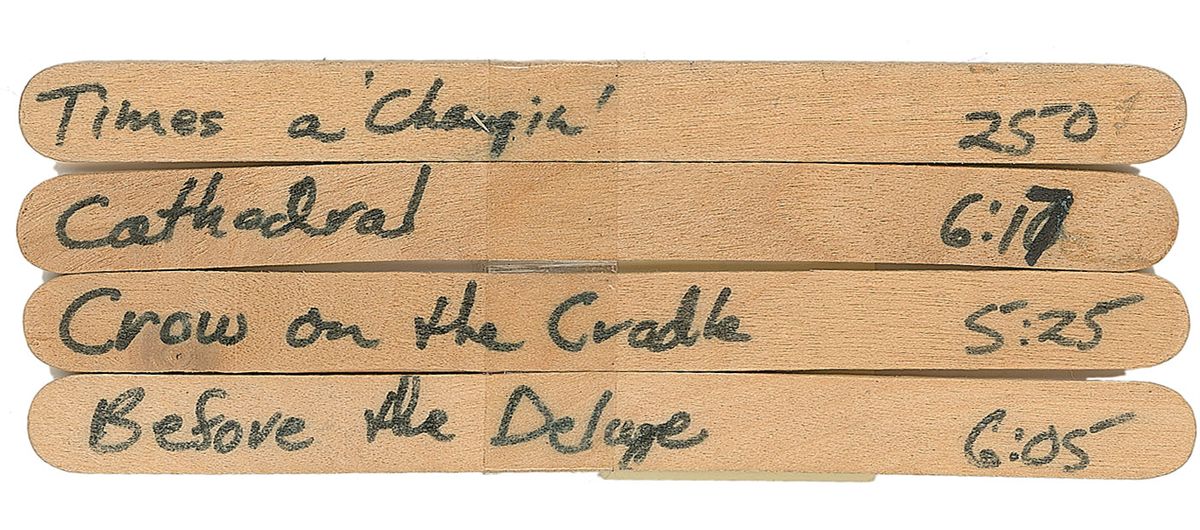 Times a 'Changin' 250
Cathedral 6:17
Crow on the Cradle 5:25
Before the Deluge 6:05